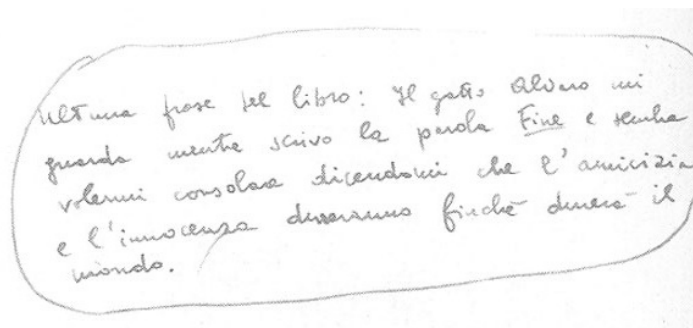 Ultima frase del libro: Il gatto Alvaro mi
guarda mentre scrivo la parola Fine e sembra
volermi consolare dicendomi che l'amicizia
e l'innocenza dureranno finchè durerà il
mondo.